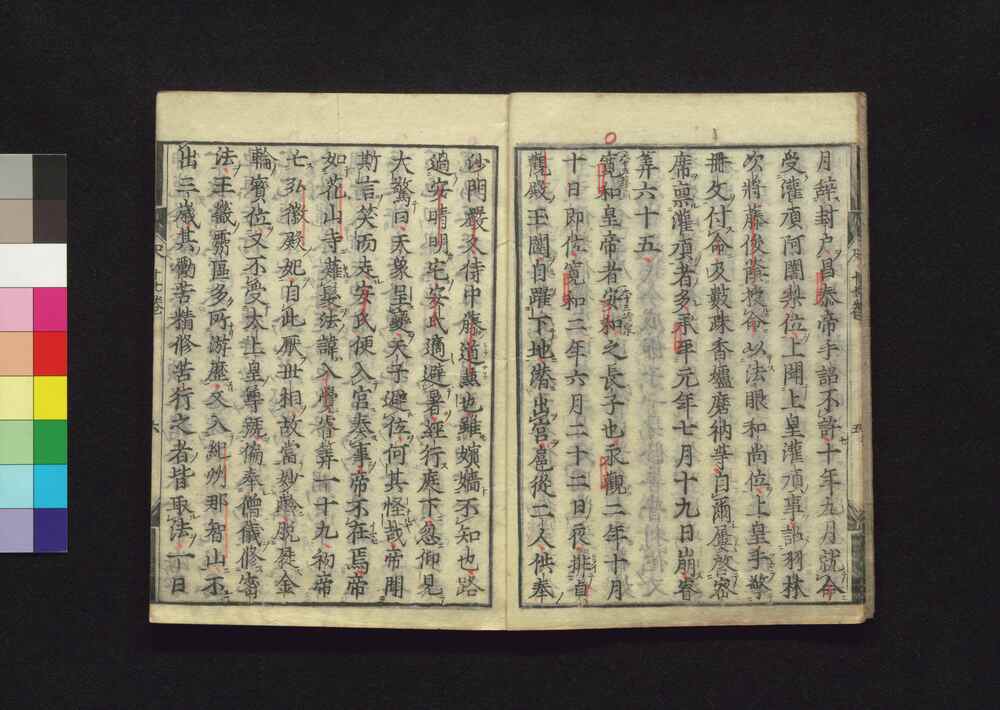 月辞封戸昌泰帝手詔不許十年九月就命
受灌頂阿闍梨位上開上皇灌頂事詔羽林
次將藤俊蔭授命以法眼和尚位上皇手擎
冊文付命及數珠香爐磨納等自爾屢啓密
席稟灌頂者多承平元年七月十九日崩春
筭六十五
寬和皇帝者安和之長子也永觀二年十月
十日即位寬和二年六月二十二日夜排貞
觀殿王闥自躍下地潜出宮扈從二人供奉
沙門嚴久侍中藤道兼也雖嬪嬙不知也路
過安晴明宅安氏適避暑經行庭下忽仰見
大驚曰天象呈變天子避位何其怪哉帝聞
斯言笑而走安氏便入宮奏事帝不在焉帝
如花山寺薙髮法諱入覺春筭一十九初帝
亡弘徽殿妃自此厭世相故當妙齡脫屣金
輪寶位又不受太上皇尊號偏奉僧儀修密
法王畿靈區多所游歷又入紀州那智山不
出三歲其勤苦精修苦行之者皆取法一日